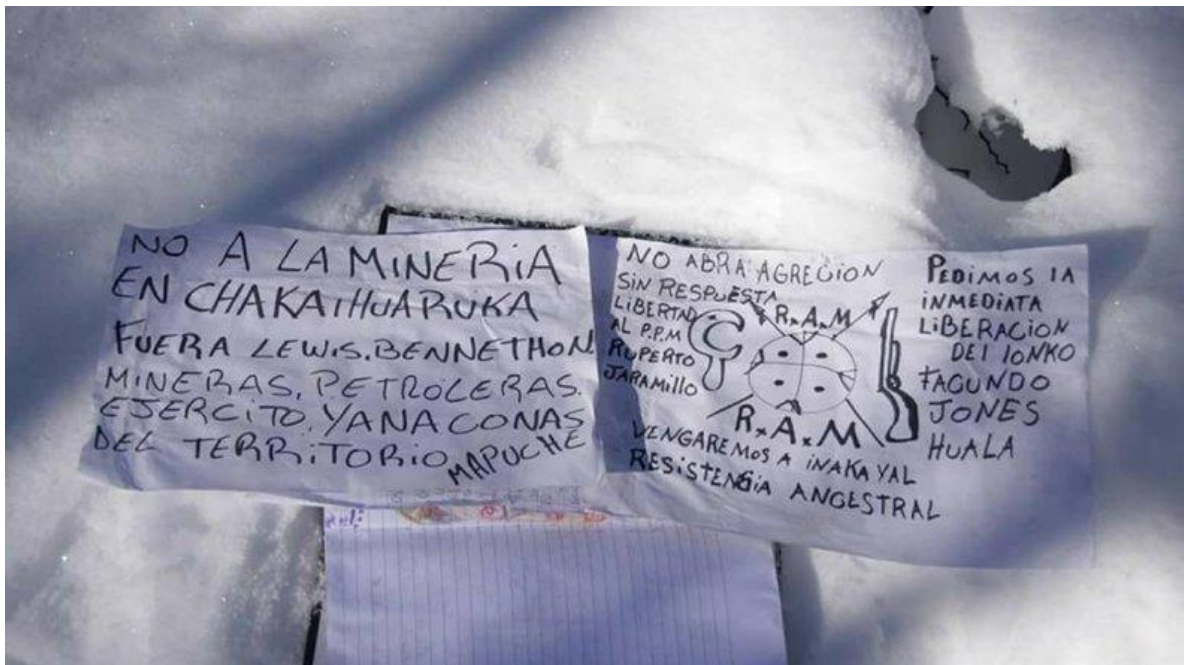 NO A LA MINERIA
EN CHAKAIHUARUKA
FUERA LEWIS. BENNETHON.
MINERAS. PETROLERAS.
EJERCITO. YANACONAS
DEL TERRITORIO MAPUCHE
NO ABRA AGRECION
SIN RESPUESTA
LIBERTAD
AL P.P.M
RUPERTO
JARAMILLO
R.A.M
R.A.M
VENGAREMOS A INAKAYAL
RESISTENSIA ANCESTRAL
PEDIMOS LA
INMEDIATA
LIBERACION
DEl lONKO
FACUNDO
JONES
HUALA